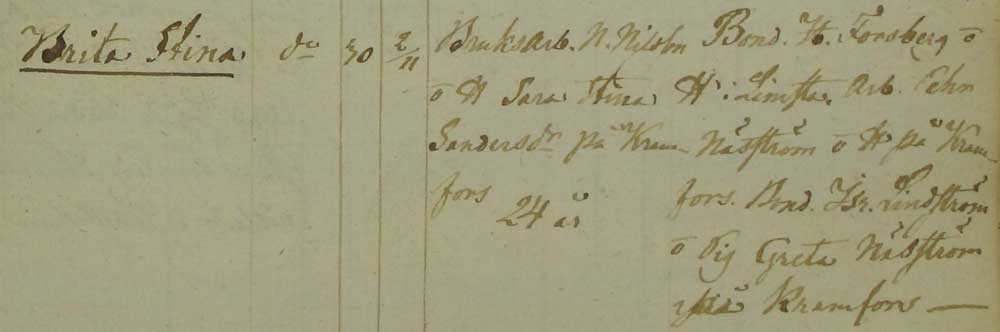 Brita Stina do 30 2/11 Bruksarb. N. Nilsson Bond. H. Forsberg o
o H Sara Stina H i Limsta. Arb. Pehr
Sandersdr på Kram- Näsström o H på Kram-
fors 24 år fors. Bond. Isr. Lindström
o Pig Greta Näsström
på Kramfors —